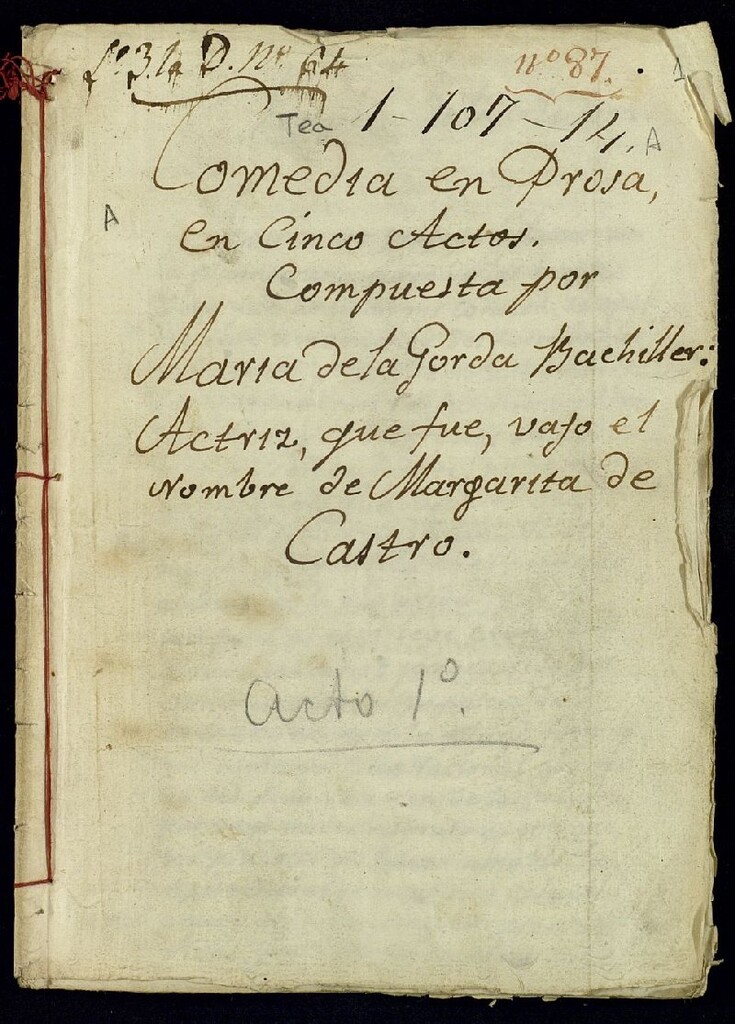 Lº 3. la D. Nº 64
nº 87.
1
Tea 1-107-14, A
Comedia en Prosa,
A
en Cinco Actos.
Compuesta por
Maria de la Gorda Bachiller:
Actriz, que fue, vajo el
Nombre de Margarita de
Castro.
Acto 1º.